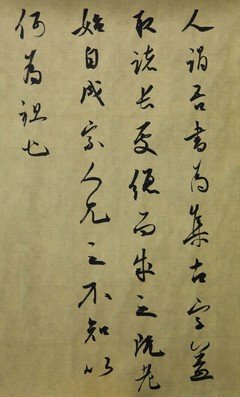 人謂吾書為集古字蓋
取諸長處總而成之既老
始自成家人見之不知以
何為祖也